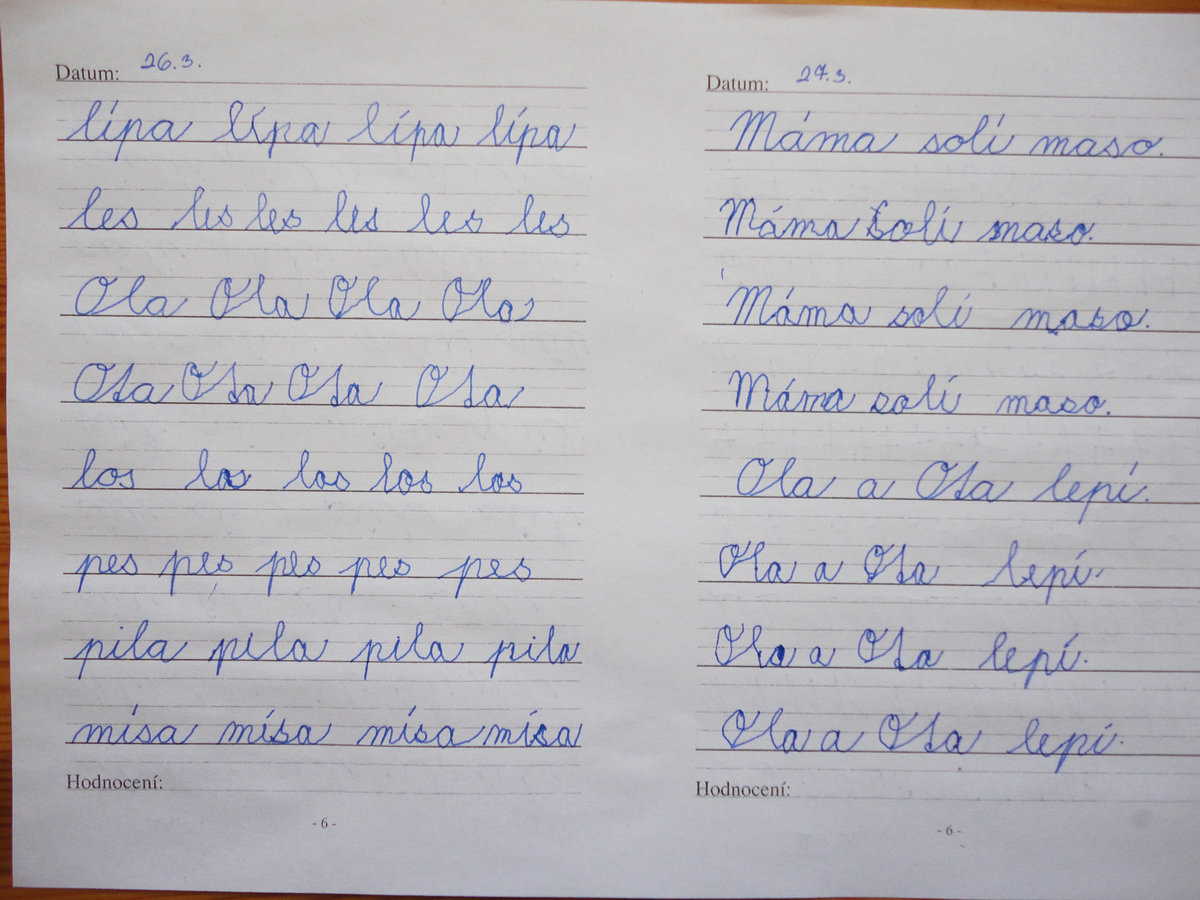 Datum: 26.3.
lípa lípa lípa lípa
les les les les les les
Ola Ola Ola Ola
Ota Ota Ota Ota
los los los los los
pes pes pes pes pes
pila pila pila pila
mísa mísa mísa mísa
Hodnocení:
- 6 -
Datum: 27.3.
Máma solí maso.
Máma solí maso.
Máma solí maso.
Máma solí maso.
Ola a Ota lepí.
Ola a Ota lepí.
Ola a Ota lepí.
Ola a Ota lepí.
Hodnocení:
- 6 -